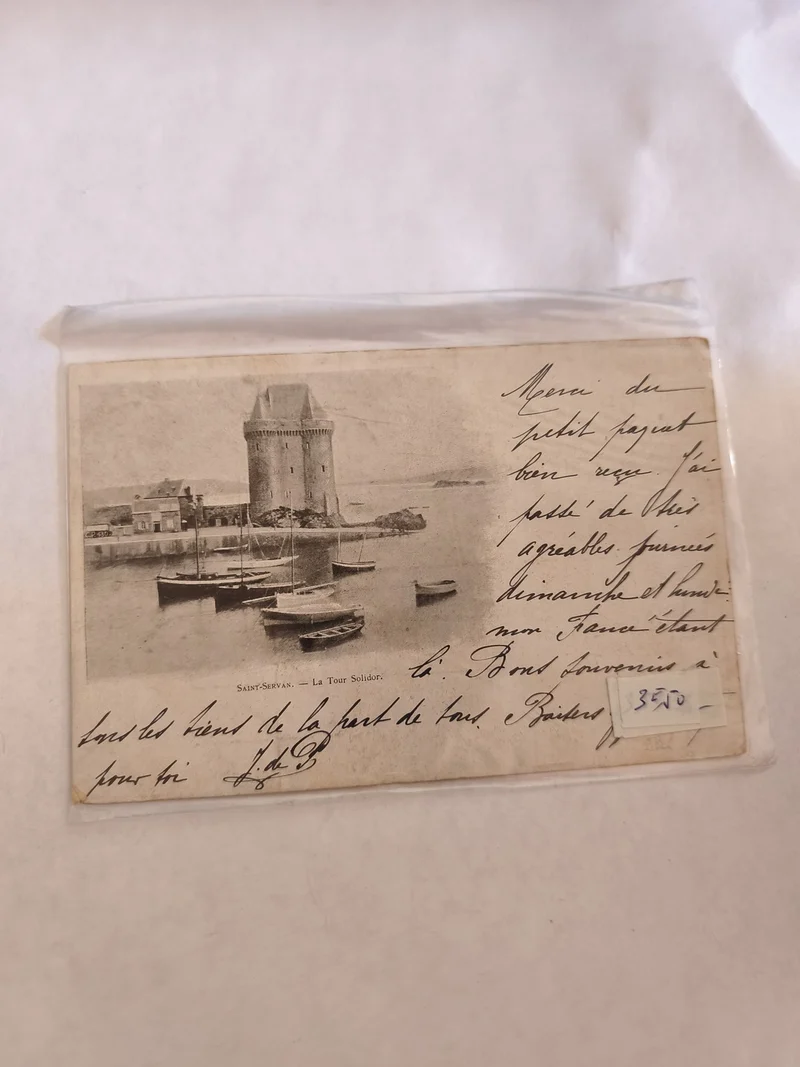 Merci du
petit paquet
bien reçu. J'ai
passé de très
agréables journées
dimanche et lundi
mon France étant
là. Bons souvenirs à
SAINT-SERVAN. — La Tour Solidor.
tous les tiens de la part de tous. Baisers
3F50 -
pour toi J. de P